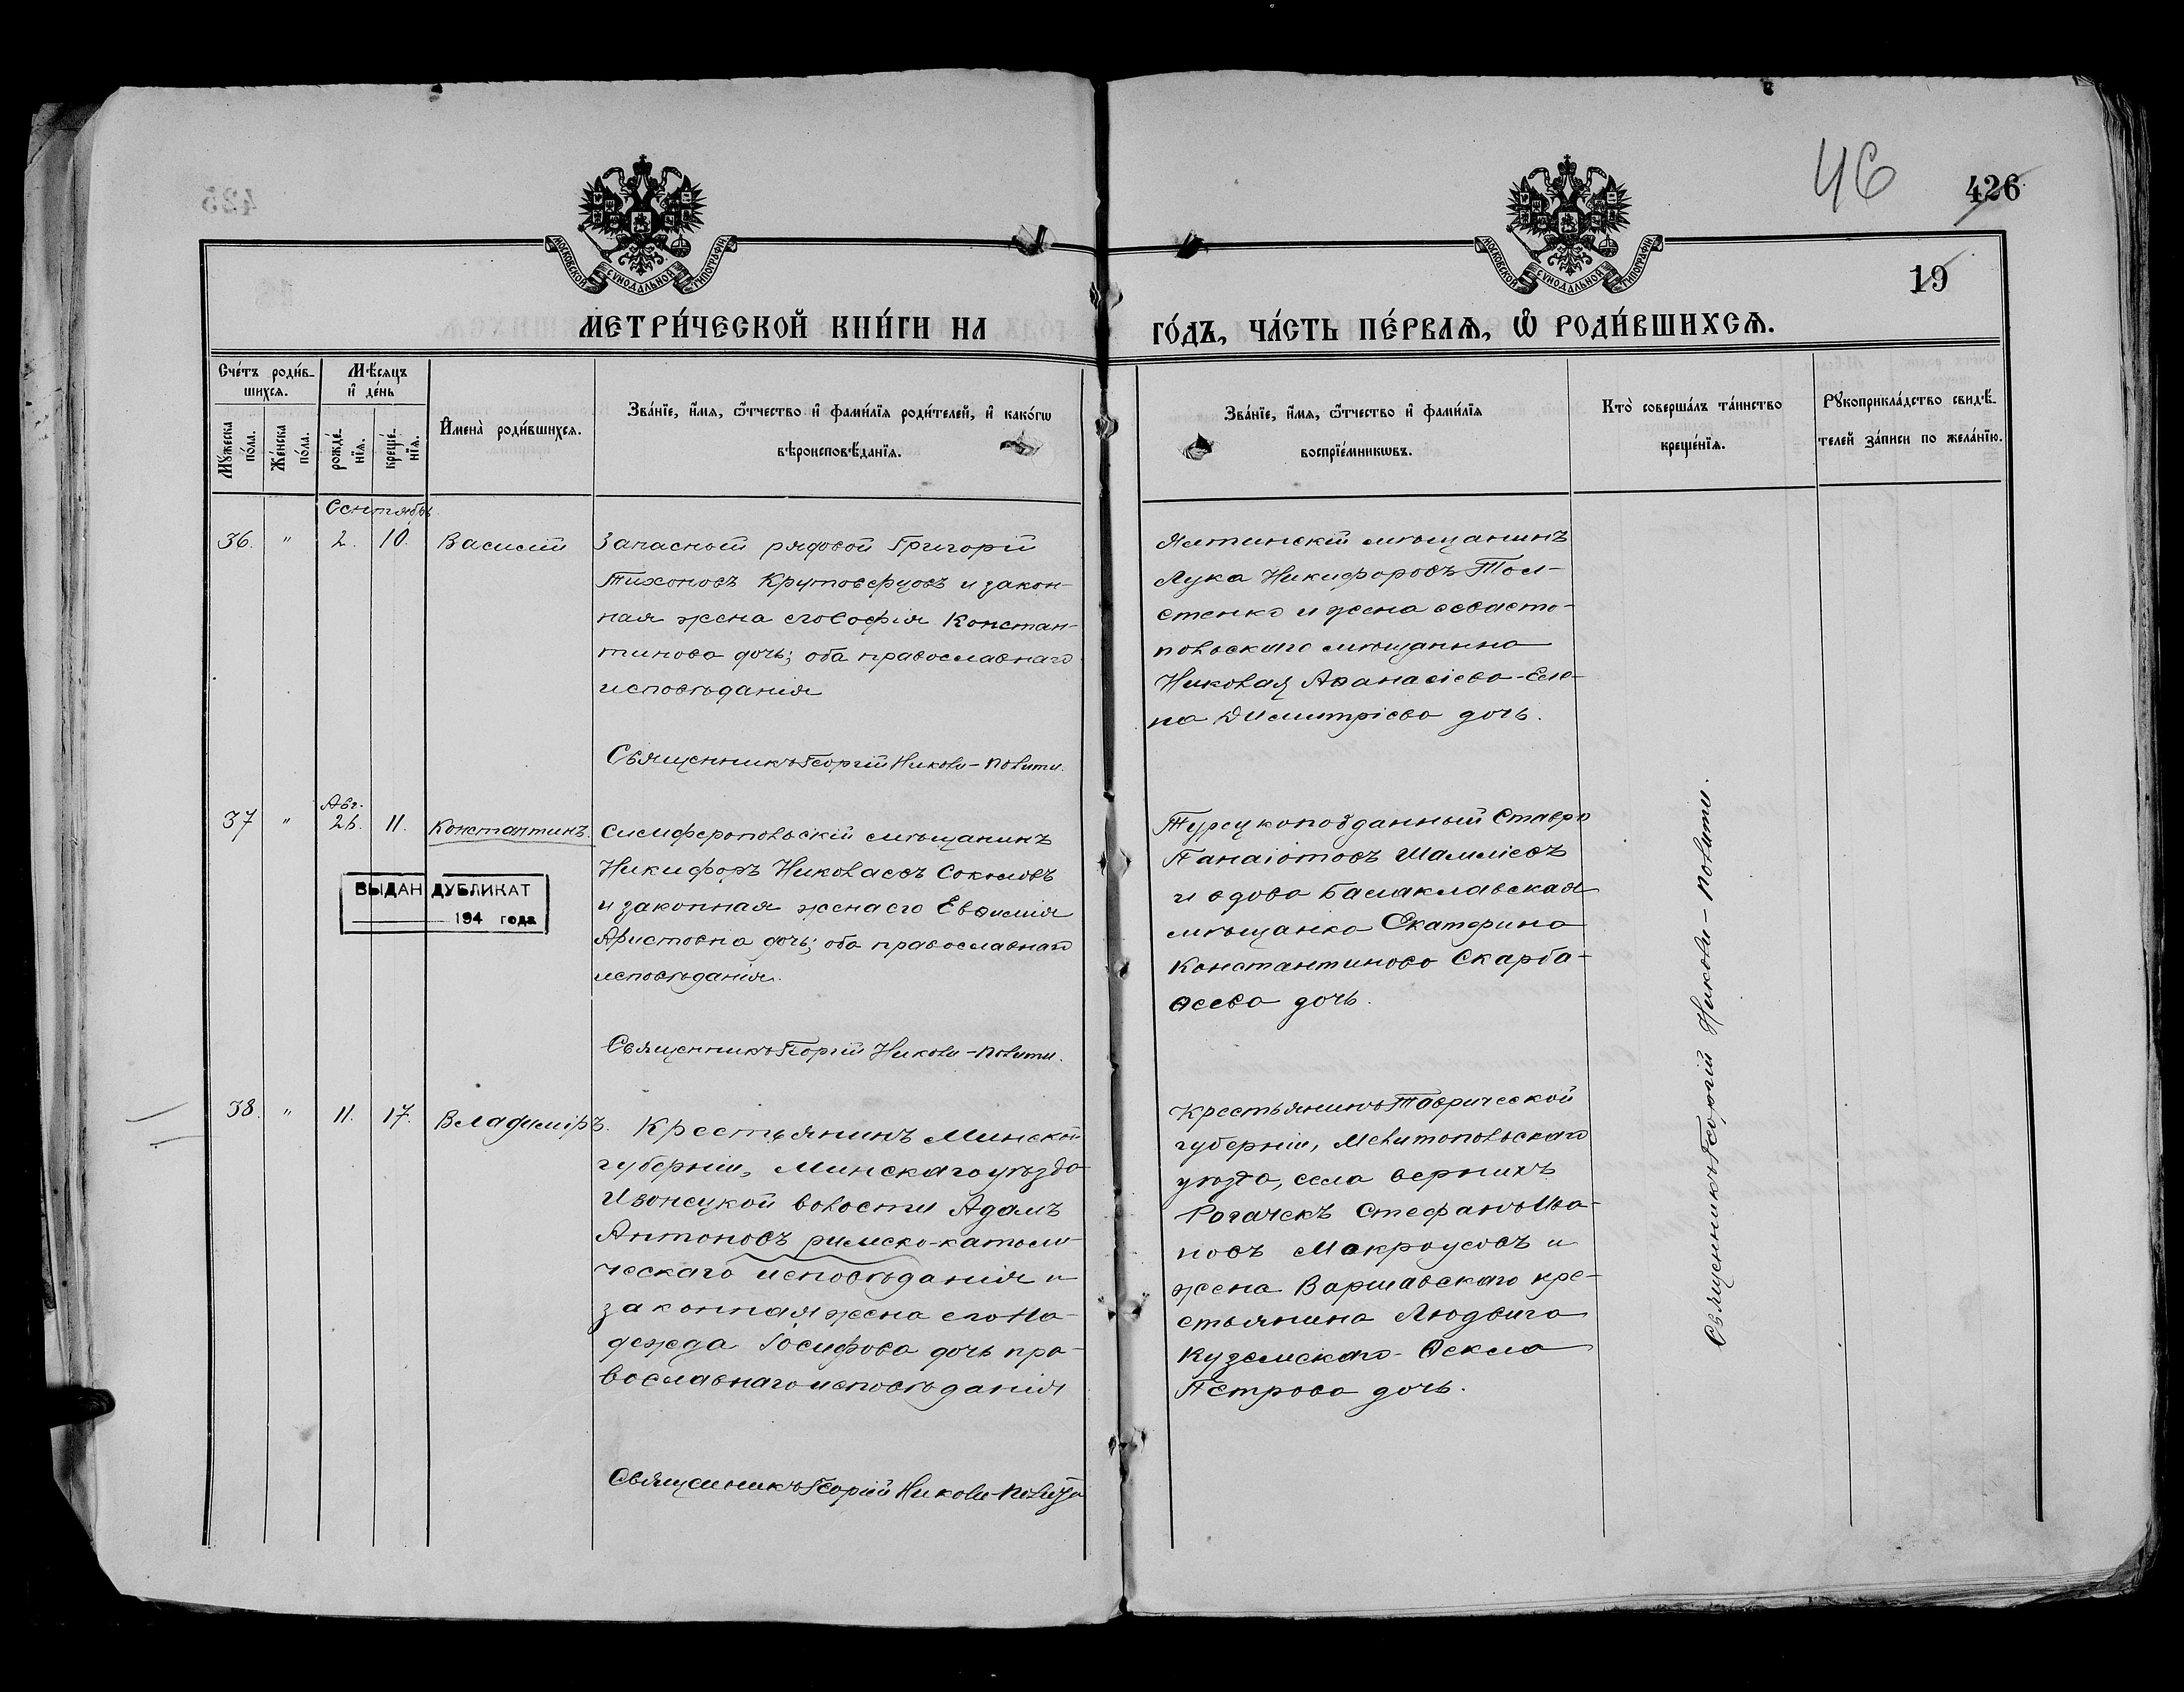 46
426
19
МОСКОВСКОЙ СѴНОДАЛЬНОЙ ТИПОГРАФІИ
МОСКОВСКОЙ СѴНОДАЛЬНОЙ ТИПОГРАФІИ
МЕТРИ́ЧЕСКОЙ КНИ́ГИ НА
ГО́ДЪ, ЧА́СТЬ ПЕ́РВАѦ, Ѡ҆ РОДИ́ВШИХСѦ.
Сче́тъ роди́в-
шихсѧ.
Мꙋ́жеска по́ла.
Же́нска по́ла.
Мѣ́сѧцъ и҆ де́нь
рожде́-нїѧ.
креще́-нїѧ.
И҆мена̀ роди́вшихсѧ.
Зва́нїе, и҆́мѧ, ѻ҆́тчество и҆ фами́лїѧ роди́телей, и҆ како́гѡ
вѣроисповѣ́данїѧ.
Зва́нїе, и҆́мѧ, ѻ҆́тчество и҆ фами́лїѧ
воспрїе́мникѡвъ.
Кто̀ соверша́лъ та́инство
креще́нїѧ.
Рꙋкоприкла́дство свидѣ́-
телей за́писи по жела́нїю.
Сентябрь
36. " 2. 10. Василій
Запасный рядовой Григорій
Тихоновъ Крутоверцовъ и закон-
ная жена его Софія Констан-
тинова дочь; оба православнаго
исповѣданія
Священникъ Георгій Николи-Полити.
Ялтинскій мѣщанинъ
Лука Никифоровъ Тол-
стенко и жена севасто-
польскаго мѣщанина
Николая Аѳанасіева-Еле-
на Димитріева дочь.
Авг.
37 " 26. 11. Константинъ.
ВЫДАН ДУБЛИКАТ
194 года
Симферопольскій мѣщанинъ
Никифоръ Николаевъ Соколовъ
и законная жена его Евѳимія
Аристовна дочь; оба православнаго
исповѣданія.
Священникъ Георгій Николи-Полити.
Турецкоподданный Ставро
Панаіотовъ Шамліевъ
и вдова Балаклавская
мѣщанка Екатерина
Константиново Скарба-
ѳеева дочь.
38. " 11. 17. Владиміръ.
Крестьянинъ Минской
губерніи, Минскаго уѣзда
Ивонецкой волости Адамъ
Антоновъ римско-католи-
ческаго исповѣданія и
законная жена его На-
дежда Іосифова дочь пра-
вославнаго исповѣданія
Священникъ Георгій Николи-Полити
Крестьянинъ Таврической
губерніи, Мелитопольскаго
уѣзда, села верхихъ
Рогачекъ Стефанъ Ива-
новъ Макроусовъ и
жена Варшавскаго кре-
стьянина Людвига
Куземскаго-Ѳекла
Петрова дочь.
Священникъ Георгій Николи-Полити.